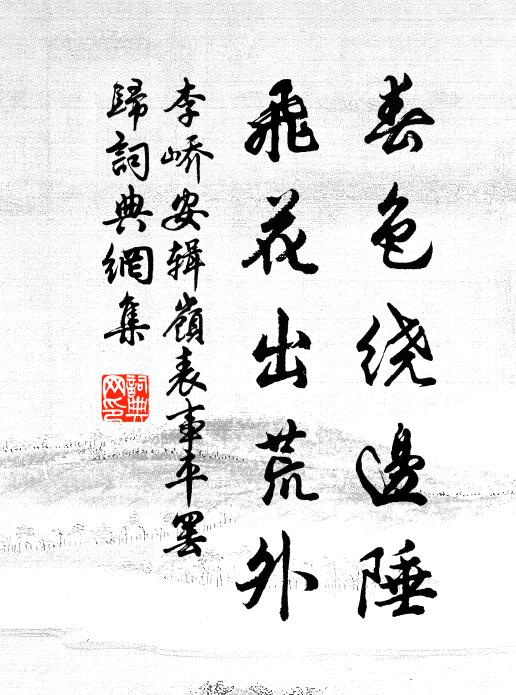 春色绕邊陲
飛花出荒外
李嶠安輯嶺表事平罷
歸詞典網集
詞典
网印